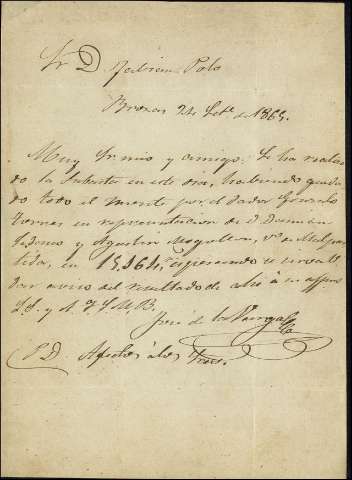 Sr D. Fabian Polo
Brozas 24 Set.e de 1865.
Muy Sr mio y amigo: Se ha realiza
do la subasta en este dia, habiendo queda
do todo el monte por el Sador Gonzalo
Torres en representacion de D. Damian
y Agustin Mogollon, v.os de Malpar
tida, en 15,164, esperando se
dar aviso del resultado de ahí á su affmo
S.S. y A. Q. S. M. B.
José de la
P.D. Afectos á los